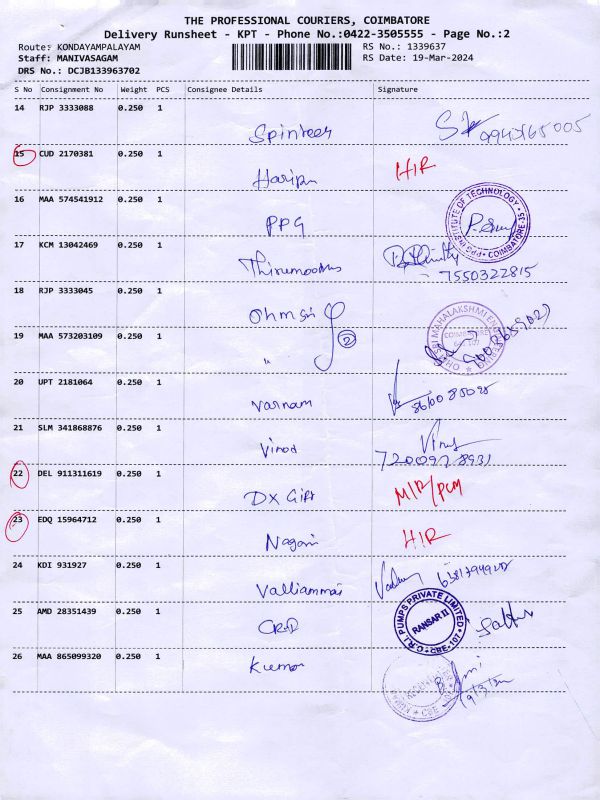 THE PROFESSIONAL COURIERS, COIMBATORE
Delivery Runsheet - KPT - Phone No.:0422-3505555 - Page No.:2
Route: KONDAYAMPALAYAM
RS No.: 1339637
Staff: MANIVASAGAM
RS Date: 19-Mar-2024
DRS No.: DCJB133963702
S No Consignment No Weight PCS Consignee Details Signature
14 RJP 3333088 0.250 1
Spinteen
15 CUD 2170381 0.250 1
Haripu H/R
16 MAA 574541912 0.250 1
PPG
PPG INSTITUTE OF TECHNOLOGY * COIMBATORE-35 *
17 KCM 13042469 0.250 1
7550322815
18 RJP 3333045 0.250 1
Ohm Sri
19 MAA 573203109 0.250 1
" 2
20 UPT 2181064 0.250 1
Varnam
21 SLM 341868876 0.250 1
Vinod
22 DEL 911311619 0.250 1
DX Gift
23 EDQ 15964712 0.250 1
Nagani H/R
24 KDI 931927 0.250 1
Valliammai
25 AMD 28351439 0.250 1
O.R.I. PUMPS PRIVATE LIMITED * CBE-107 *
RANSAR II
26 MAA 865099320 0.250 1
Kumar